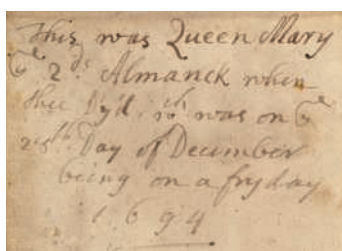 This was Queen Mary
yᵉ 2ᵈˢ Almanck when
shee Dy'd. wᶜʰ was on yᵉ
28ᵗʰ Day of December
being on a fryday
1694